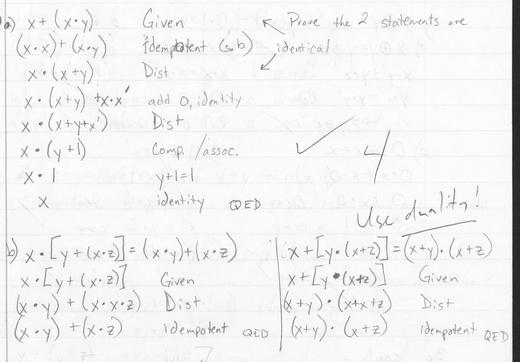 a) x + (x•y) Given ↖ Prove the 2 statements are
(x•x)+(x•y) Idempotent (sub) identical
x•(x+y) Dist ↙
x•(x+y) +x•x' add 0, identity
x•(x+y+x') Dist
x•(y+1) Comp./assoc. ✓
x•1 y+1=1
x identity QED
Use duality!
b) x•[y+(x•z)]=(x•y)+(x•z)
x•[y+(x•z)] Given
(x•y)+(x•x•z) Dist
(x•y)+(x•z) idempotent QED
x+[y•(x+z)]=(x+y)•(x+z)
x+[y•(x+z)] Given
(x+y)•(x+x+z) Dist
(x+y)•(x+z) idempotent QED